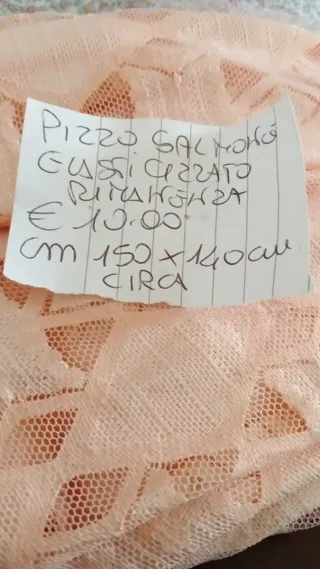 PIZZO SALMONE
ELASTICIZZATO
RIMANENZA
€ 10.00
cm 150 x 140 cm
CIRCA